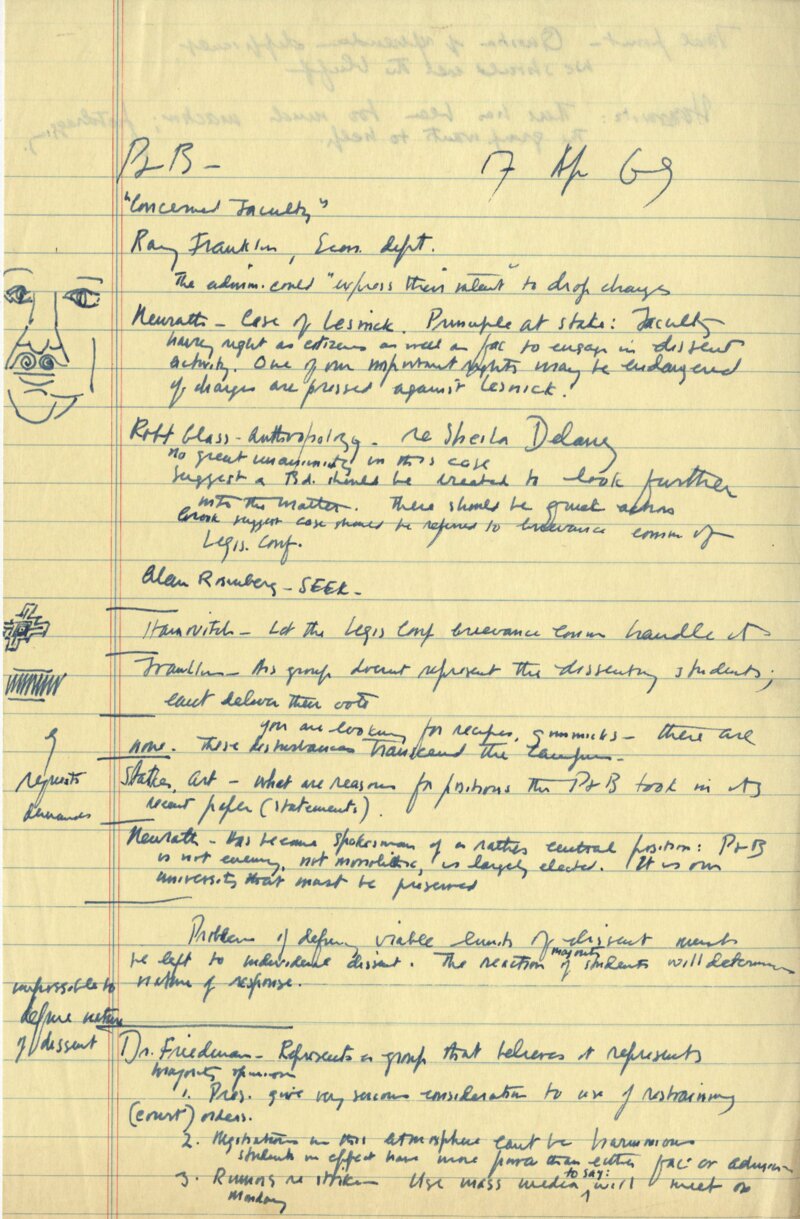 P & B – 17 Ap 69
"Concerned Faculty"
Ray Franklin, Econ. dept.
The admin. could "express their intent" to drop charges
Neurath – Case of Lesnick. Principle at stake: Faculty
having right as citizens as well as fac to engage in dissent
activity. One of our important rights may be endangered
if charges are pressed against Lesnick.
Robt Glass – Anthropology – re Sheila Delany
no great unanimity in this case
suggest a Bd. should be created to look further
into the matter. There should be quick action
suggest case should be referred to Grievance comm of
Legis. Conf.
Alan Rosenberg – SEEK –
Hamovitch – Let the Legis Conf Grievance Comm handle it
Franklin – His group doesnt represent the dissenting students;
cant deliver their vote
you are looking for recipes, gimmicks – there are
none. These disturbances transcend the campus –
requests
demands
Art – what are reasons for positions the P & B took in its
recent paper (statements).
Neurath – Has become spokesman of a rather central position: P & B
is not enemy, not monolithic, is largely elected. It is our
university that must be preserved
Problem of defining viable limits of dissent must
be left to individual dissent. The reaction of majority students will determine
nature of response.
impossible to
define nature
of dissent
Dr. Friedman – Represents a group that believes it represents
majority opinion
1. Pres. give very serious consideration to use of restraining
(court) orders.
2. Negotiations in this atmosphere cant be harmonious
students in effect have more power than either fac or admin
3. Rumors re strike – Use mass media to say: will meet on
Monday